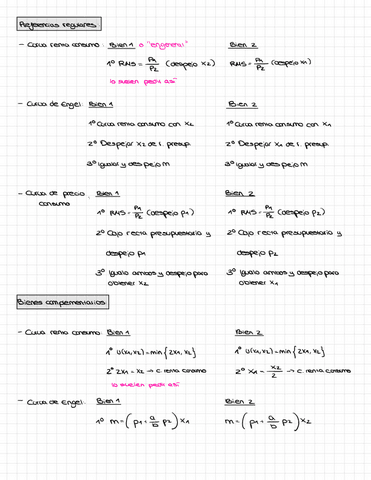 Preferencias regulares
- Curva renta consumo: Bien 1 o "en general" Bien 2
1º RMS = P1/P2 (despejo x2) RMS = P1/P2 (despejo x1)
lo suelen pedir así
- Curva de Engel: Bien 1 Bien 2
1º Curva renta consumo con x2 1º Curva renta consumo con x1
2º Despejar x2 de r. presup. 2º Despejar x1 de r. presup.
3º Igualar y despejo m 3º Igualar y despejo m
- Curva de precio consumo: Bien 1 Bien 2
1º RMS = P1/P2 (despejo p1) 1º RMS = P1/P2 (despejo p2)
2º Cojo recta presupuestaria y 2º Cojo recta presupuestaria y
despejo p1 despejo p2
3º Igualo ambos y despejo para 3º Igualo ambos y despejo para
obtener x2 obtener x1
Bienes complementarios
- Curva renta consumo: Bien 1 Bien 2
1º U(x1,x2) = min {2x1, x2} 1º U(x1,x2) = min {2x1, x2}
2º 2x1 = x2 → c. renta consumo 2º x1 = x2/2 → c. renta consumo
lo suelen pedir así
- Curva de Engel: Bien 1 Bien 2
1º m = (p1 + a/b p2) x1 m = (p1 + a/b p2) x2